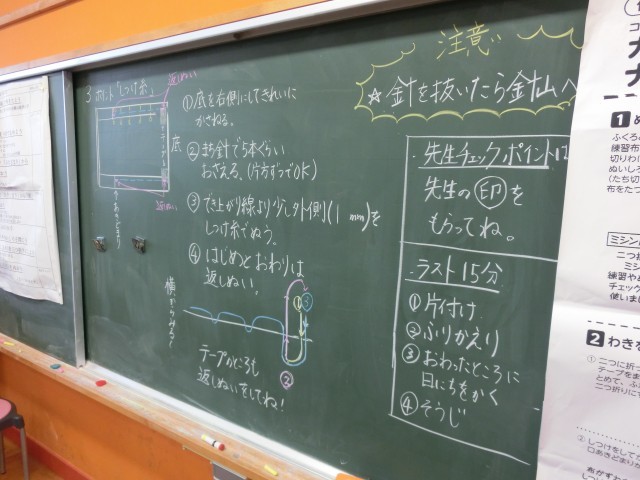 3 ポイント「しつけ糸」
返しぬい
底
返しぬい
①底を右側にしてきれいに
かさねる。
②まち針で5本くらい
おさえる。(片方ずつでOK)
③でき上がり線より少し外側(1mm)を
しつけ糸でぬう。
④はじめとおわりは
返しぬい。
横からみると
①
③
②
テープのところも
返しぬいをしてね!
注意
☆針を抜いたら金山へ
・先生チェックポイントは
先生の印を
もらってね。
・ラスト15分
①片付け
②ふりかえり
③おわったところに
日にちをかく
④そうじ
1 ぬ
ふくろの
練習布
切りわけ
ぬいしろ
(たち切
布をたて
ミシン
二つ折
ミシ
練習や
チェック
使いま
2 わきを
① 二つに折っ
テープをま
とめて、ふ
二つ折りに
② しつけをしてか
口あきどまりか
布がすわ